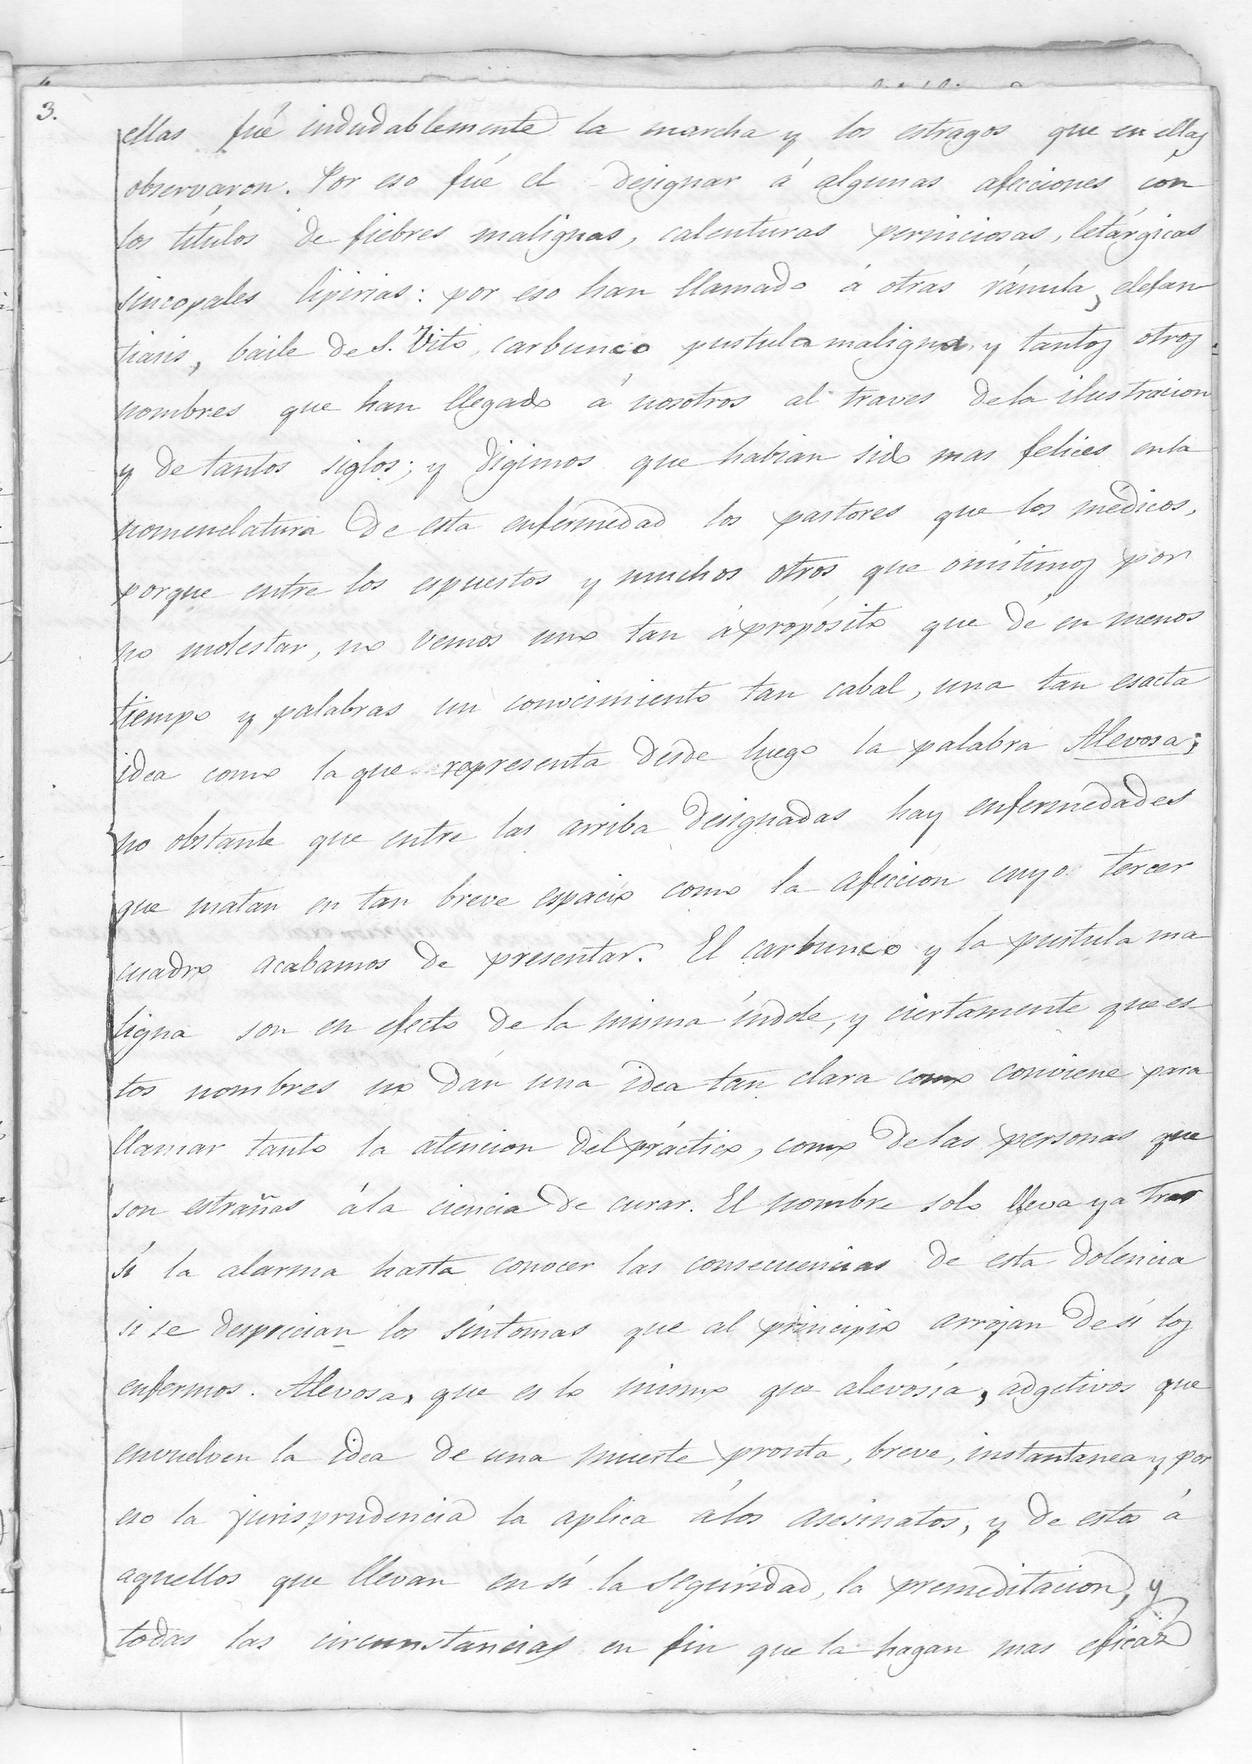 3.
ellas fué indudablemente la marcha y los estragos que en ellas
observaron. Por eso fué el designar á algunas afecciones con
los títulos de fiebres malignas, calenturas perniciosas, letárgicas
sincopales lipirias: por eso han llamado á otras ránula, elefan
tiasis, baile de S. Vito, carbunco pustula maligna, y tantos otros
nombres que han llegado á nosotros al traves dela ilustracion
y de tantos siglos; y digimos que habian sido mas felices en la
nomenclatura de esta enfermedad los pastores que los médicos,
porque entre los espuestos y muchos otros que omitimos por
no molestar, no vemos uno tan ápropósito que dé en menos
tiempo y palabras un conocimiento tan cabal, una tan esacta
idea como la que representa desde luego la palabra Alevosa;
no obstante que entre las arriba designadas hay enfermedades
que matan en tan breve espacio como la afeccion cuyo tercer
cuadro acabamos de presentar. El carbunco y la pustula ma
ligna son en efecto de la misma índole, y ciertamente que es-
tos nombres no dán una idea tan clara como conviene para
llamar tanto la atencion del práctico, como de las personas que
son estrañas ála ciencia de curar. El nombre solo lleva ya tras
sí la alarma hasta conocer las consecuencias de esta dolencia
si se desprecian los síntomas que al principio arrojan de sí los
enfermos. Alevosa, que es lo mismo que alevosía, adgetivos que
envuelven la idea de una muerte pronta, breve, instantanea y por
eso la jurisprudencia la aplica álos asesinatos, y de estos á
aquellos que llevan en sí la seguridad, la premeditacion, y
todas las circunstancias en fin que la hagan mas eficáz